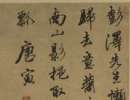 彭澤先生懶
歸去意蕭
南山影挹取
瓢 唐寅